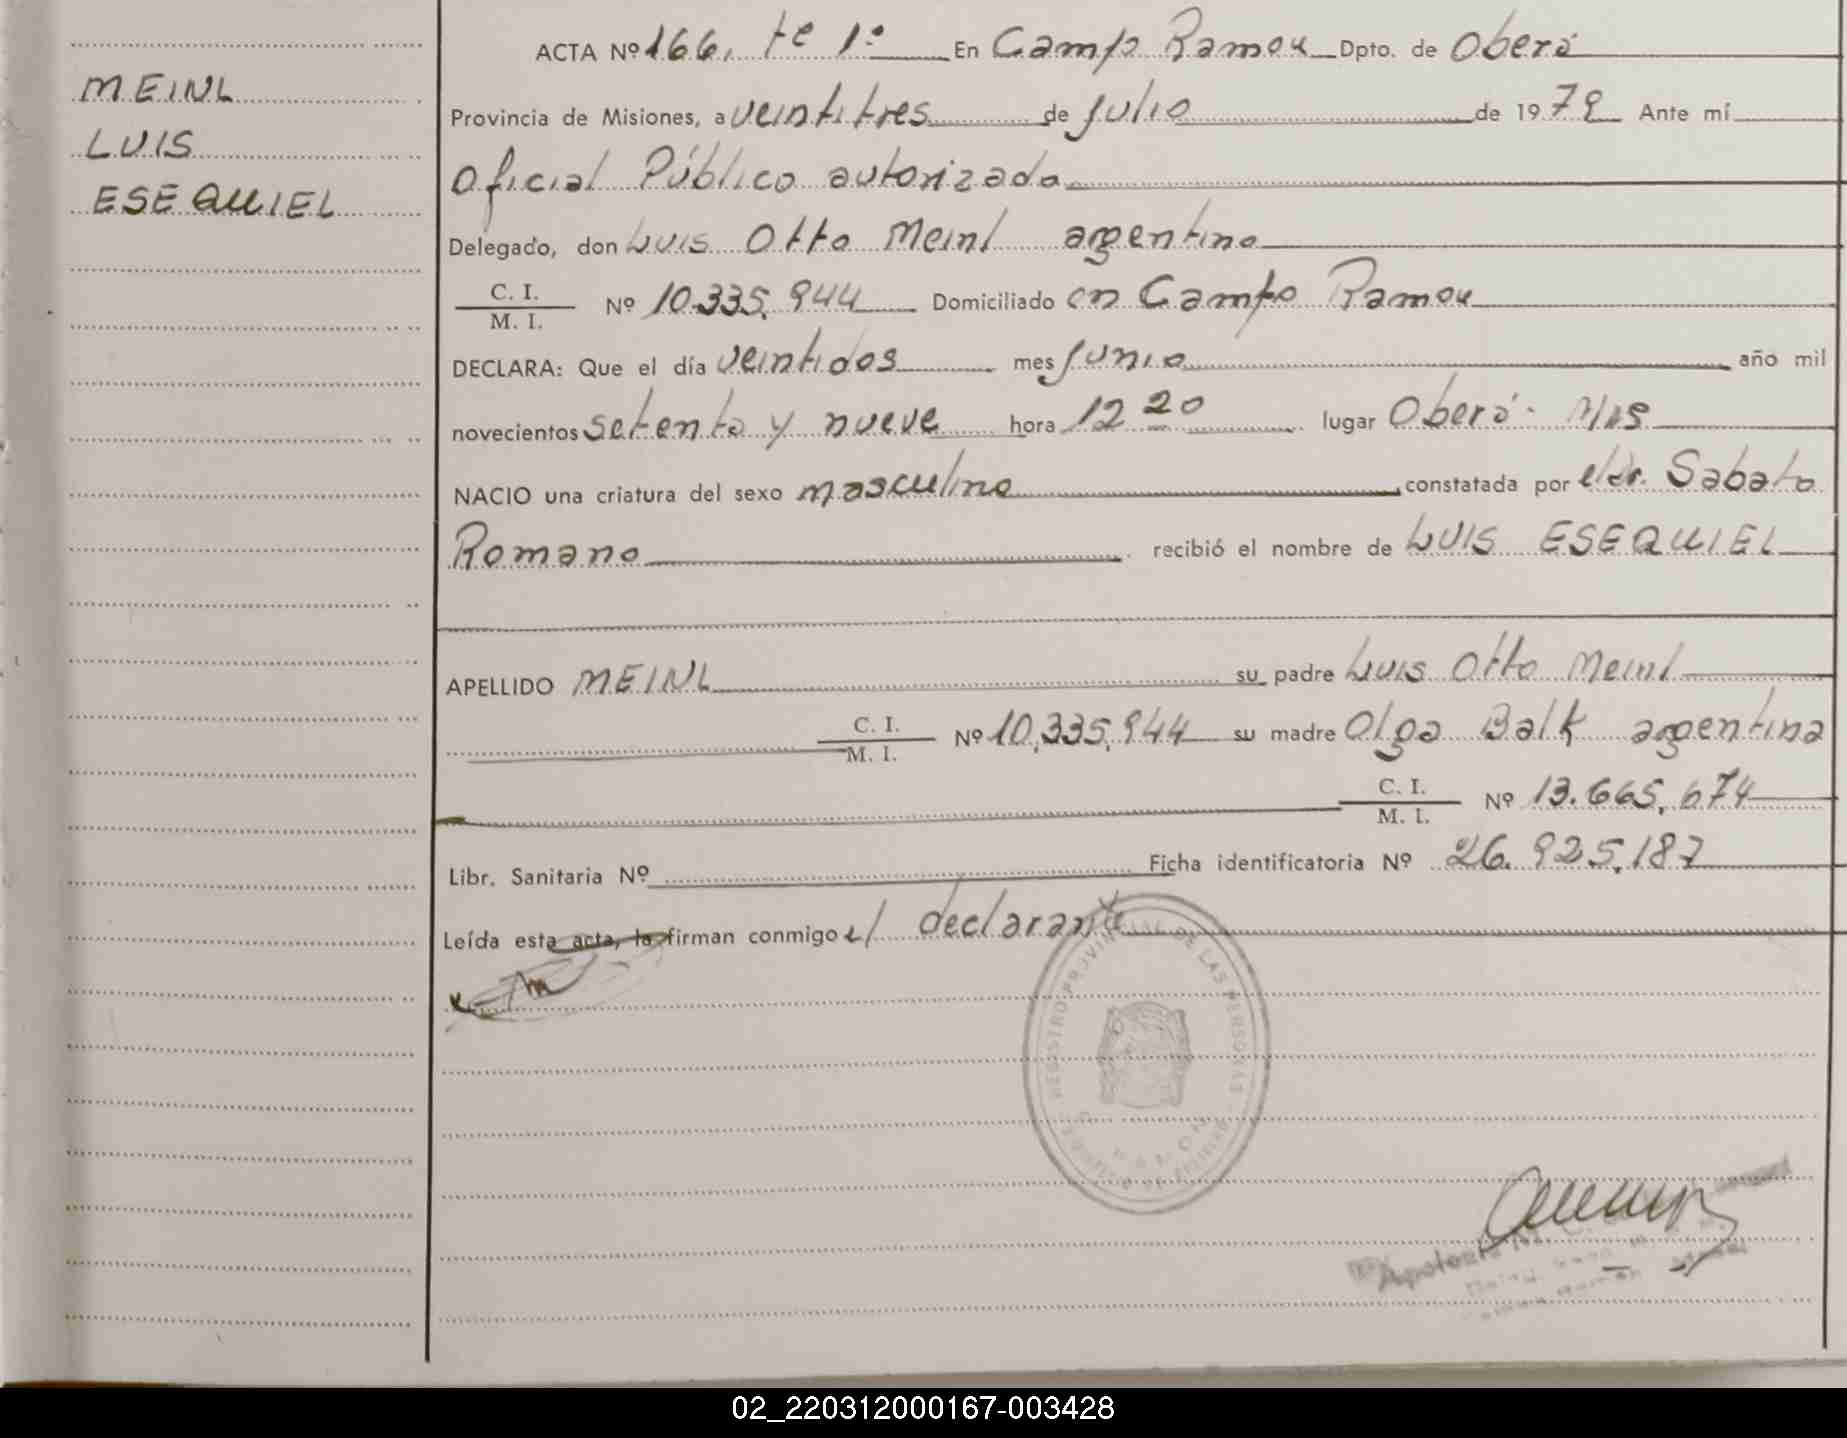 MEINL
LUIS
ESEQUIEL
ACTA Nº 166, te 1º En Campo Ramon Dpto. de Oberá
Provincia de Misiones, a veintitres de julio de 1979 Ante mí
Oficial Público autorizado
Delegado, don Luis Otto Meinl argentino
C. I.
M. I. Nº 10.335.944 Domiciliado en Campo Ramon
DECLARA: Que el día veintidos mes junio año mil
novecientos setenta y nueve hora 12 20 lugar Oberá - Mis
NACIO una criatura del sexo masculino constatada por el dr. Sabato
Romano recibió el nombre de LUIS ESEQUIEL
APELLIDO MEINL su padre Luis Otto Meinl
C. I.
M. I. Nº 10,335,944 su madre Olga Balk argentina
C. I.
M. I. Nº 13.665,674
Libr. Sanitaria Nº Ficha identificatoria Nº 26.925.187
Leída esta acta, la firman conmigo el declarante
REGISTRO PROVINCIAL DE LAS PERSONAS
02_220312000167-003428